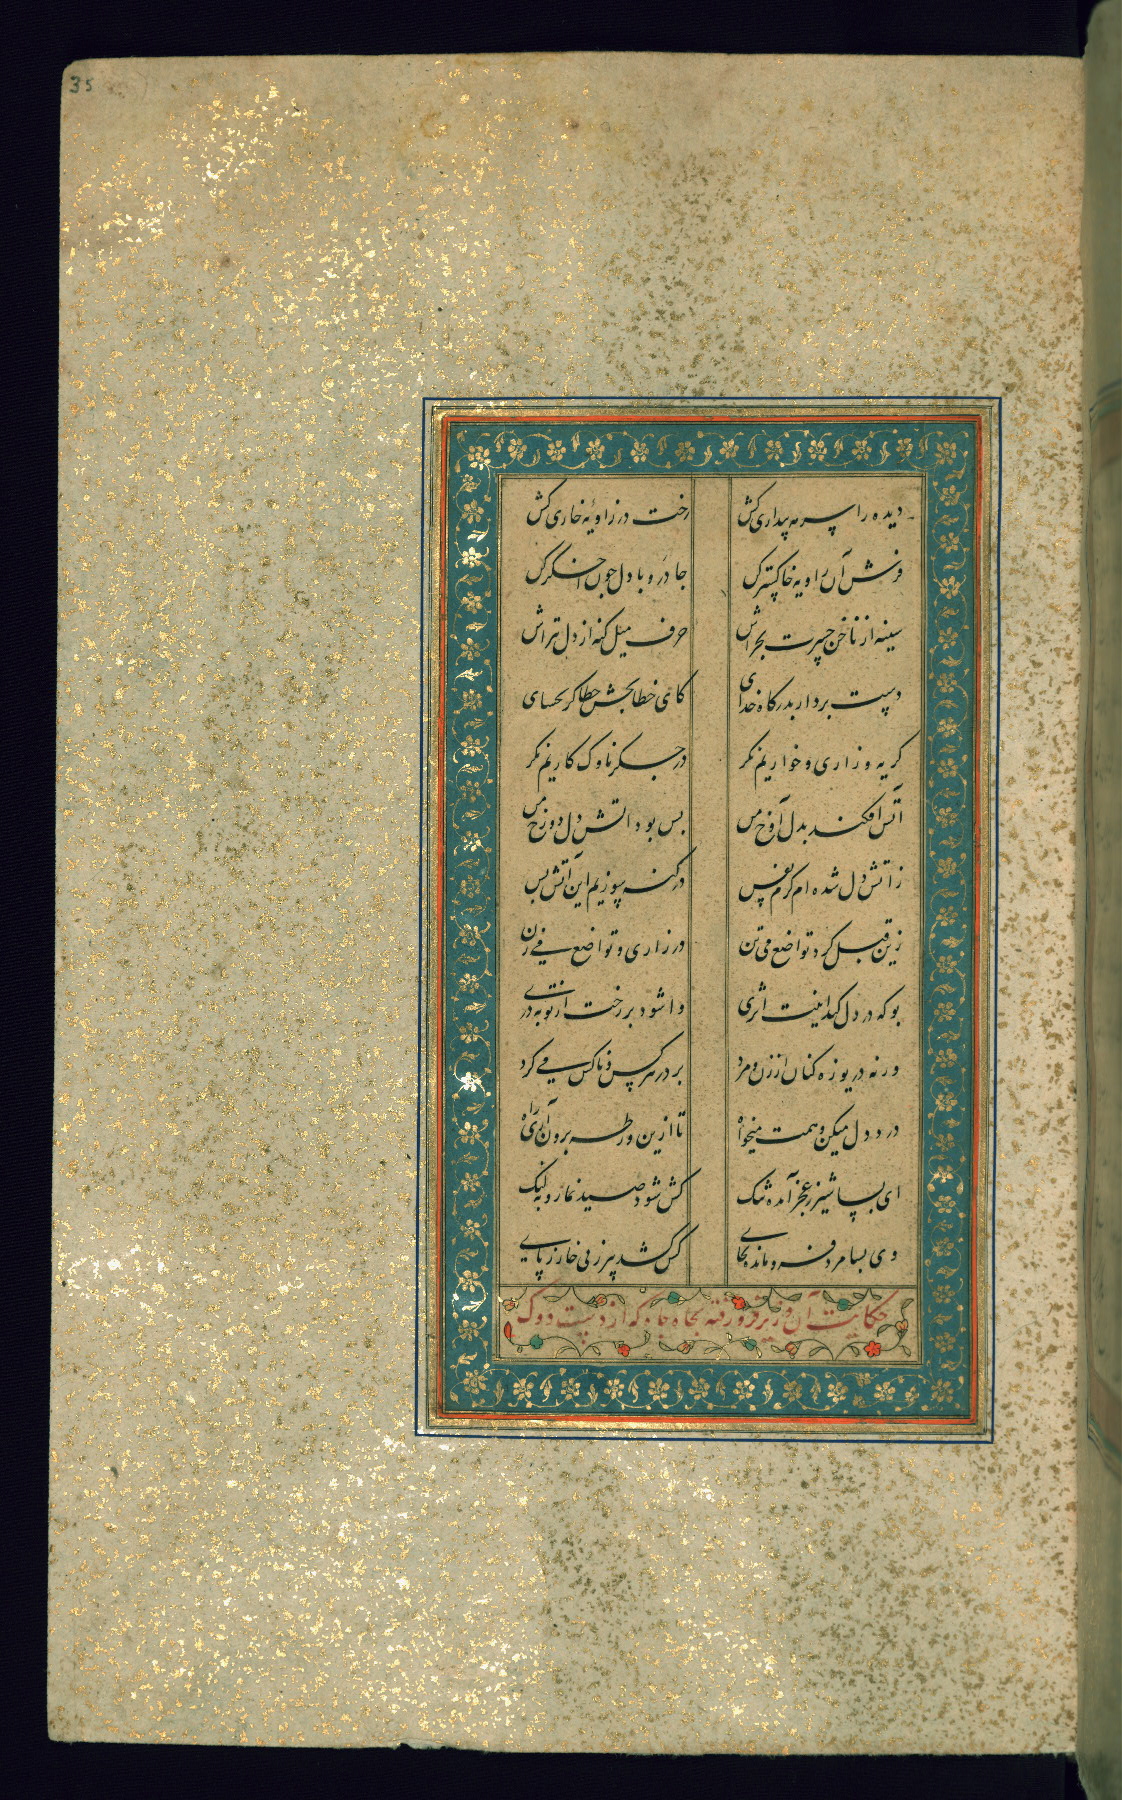 35
دیده را سرمه بیداری کش رخت در زاویه خاری کش
فرش آن زاویه خاکستر کن جا درو با دل چون اخگر کن
سینه از ناخن حسرت بخراش حرف میل گنه از دل بتراش
دست بردار بدرگاه خدای کای خطابخش خطاکار بخشای
گریه و زاری و خواریم نگر در جگر ناوک کاریم نگر
آتش افکند بدل آوخ من بس بود آتش دل دوزخ من
ز آتش دل شده ام گرم نفس در گنه سوزیم این آتش بس
زین قبل گرد تواضع می تن در زاری و تواضع می زن
بو که در دل کندانیت اثری وا شود بر رخت از توبه دری
ورنه دریوزه کنان از زن و مرد بر در هر کس و ناکس می گرد
درد دل میکن و همت میخواه تا ازین ورطه برون آری راه
ای بسا شیر ز عجز آمده تنگ کش شود صید نما روبه لنگ
وی بسا مرد فرو مانده بجای کش کشد پیرزنی خار ز پای
حکایت آن وزیر فرو رفته بچاه جاه که از دست دوک